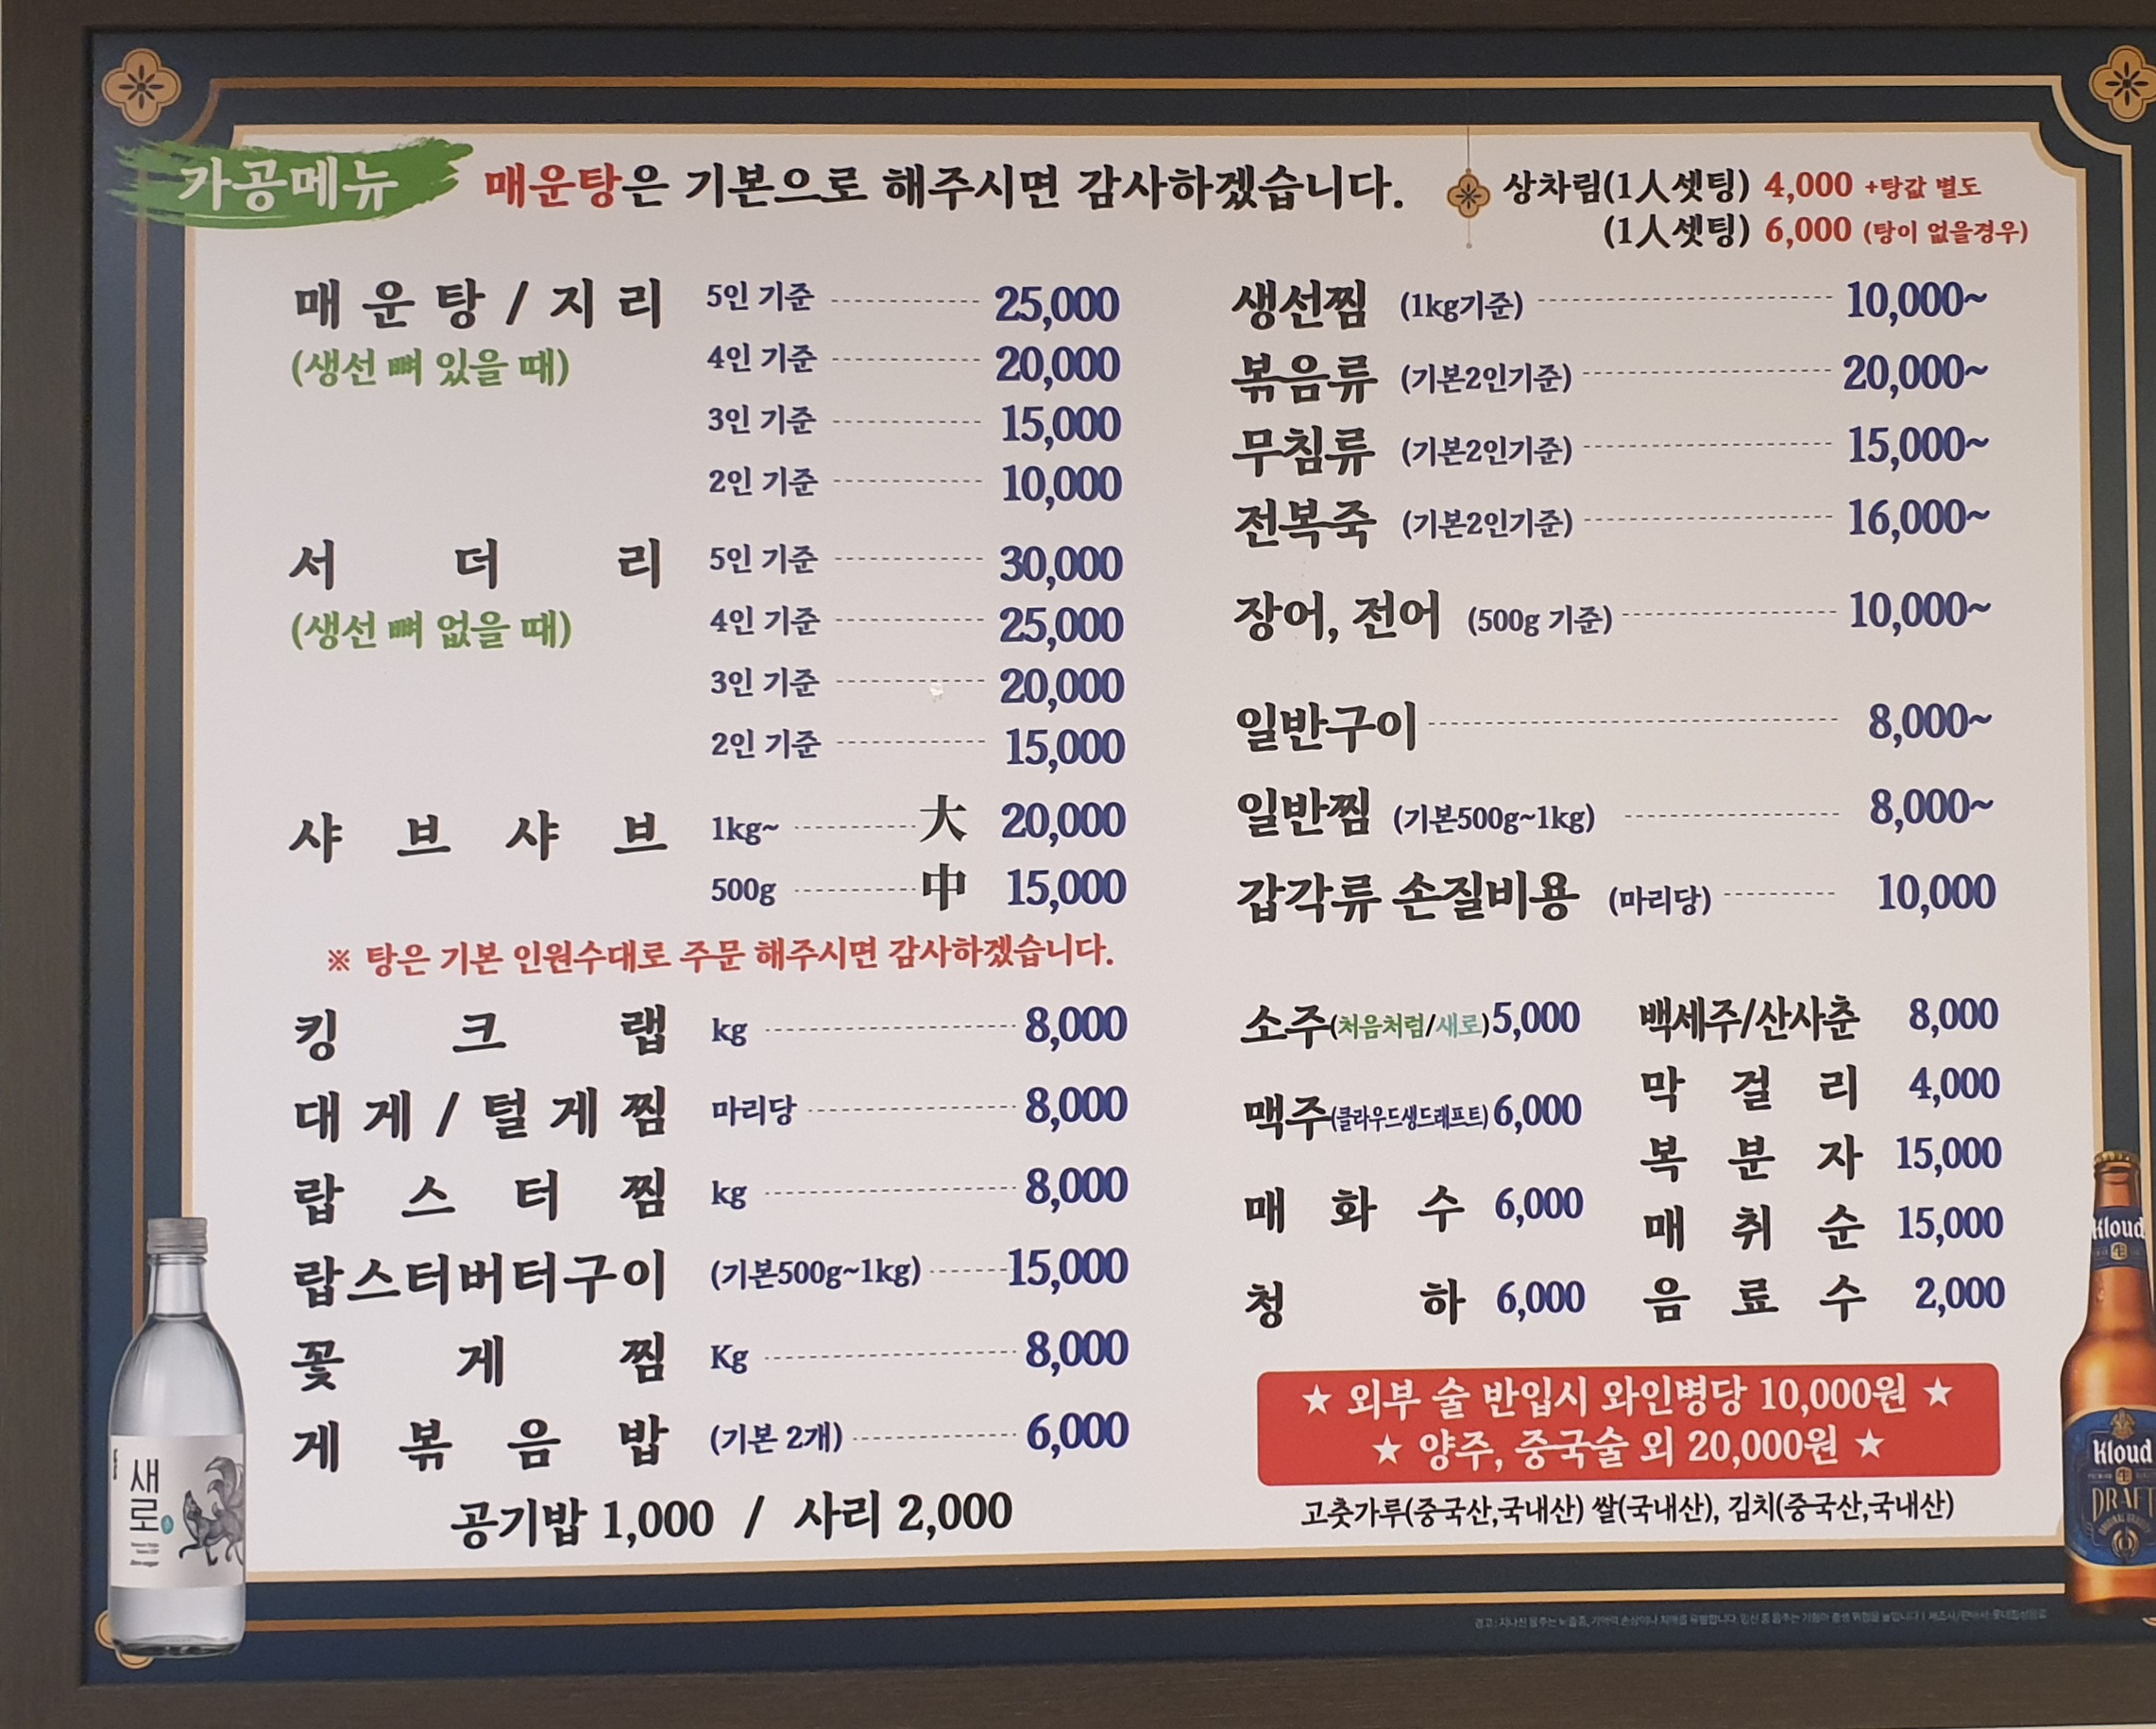 가공메뉴
매운탕은 기본으로 해주시면 감사하겠습니다.
상차림(1人셋팅) 4,000 +탕값 별도
(1人셋팅) 6,000 (탕이 없을경우)
매운탕/지리 5인 기준 25,000
(생선 뼈 있을 때) 4인 기준 20,000
3인 기준 15,000
2인 기준 10,000
서더리 5인 기준 30,000
(생선 뼈 없을 때) 4인 기준 25,000
3인 기준 20,000
2인 기준 15,000
샤브샤브 1kg~ 大 20,000
500g 中 15,000
※ 탕은 기본 인원수대로 주문 해주시면 감사하겠습니다.
킹크랩 kg 8,000
대게/털게찜 마리당 8,000
랍스터찜 kg 8,000
랍스터버터구이 (기본500g~1kg) 15,000
꽃게찜 Kg 8,000
게볶음밥 (기본 2개) 6,000
공기밥 1,000 / 사리 2,000
생선찜 (1kg기준) 10,000~
볶음류 (기본2인기준) 20,000~
무침류 (기본2인기준) 15,000~
전복죽 (기본2인기준) 16,000~
장어, 전어 (500g 기준) 10,000~
일반구이 8,000~
일반찜 (기본500g~1kg) 8,000~
갑각류 손질비용 (마리당) 10,000
소주(처음처럼/새로) 5,000
맥주(클라우드생드래프트) 6,000
매화수 6,000
청하 6,000
백세주/산사춘 8,000
막걸리 4,000
복분자 15,000
매취순 15,000
음료수 2,000
★ 외부 술 반입시 와인병당 10,000원 ★
★ 양주, 중국술 외 20,000원 ★
고춧가루(중국산,국내산) 쌀(국내산), 김치(중국산,국내산)
새로
Kloud
生
Kloud
生
DRAFT